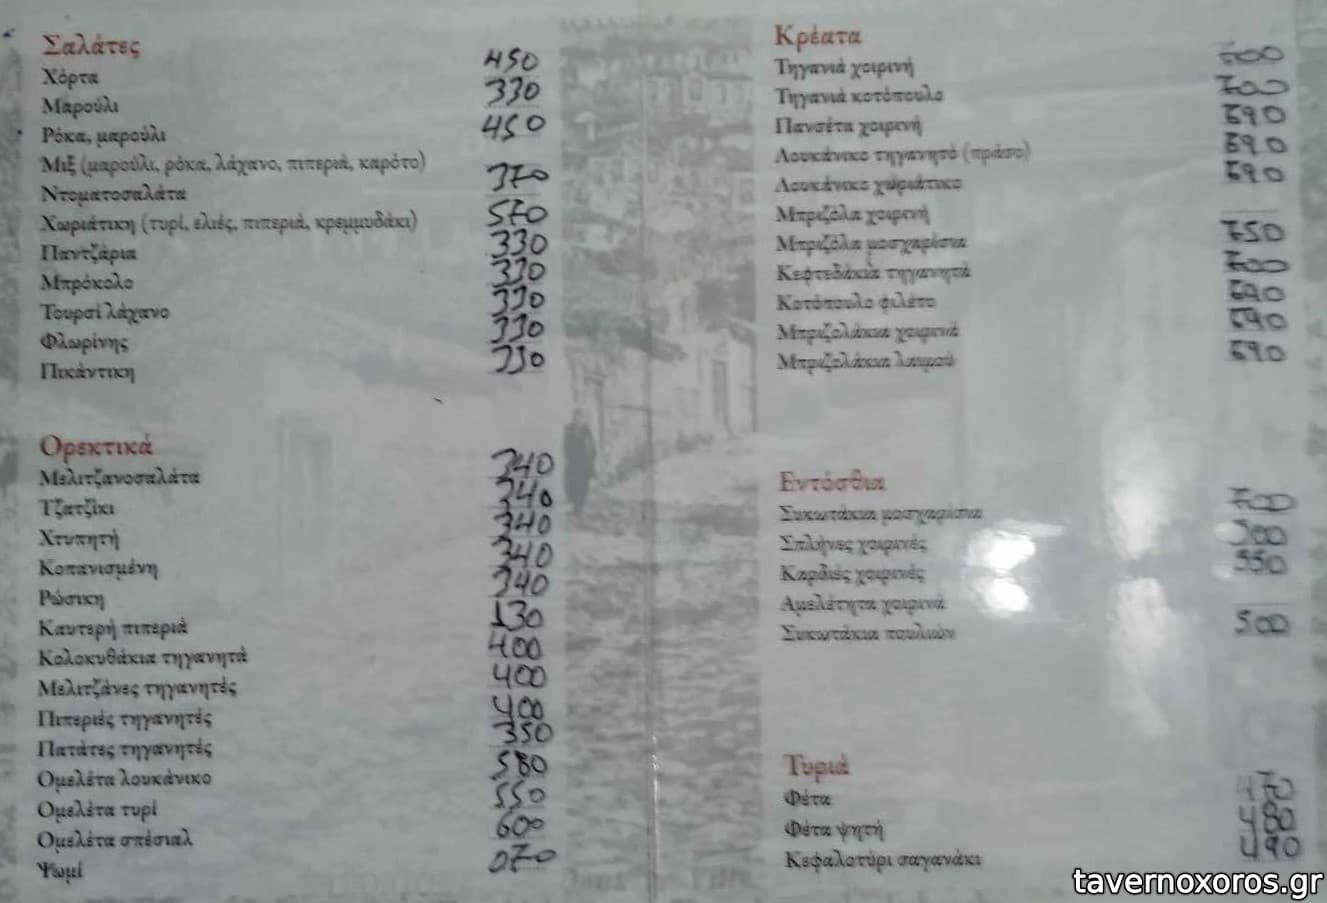 Σαλάτες
Χόρτα 450
Μαρούλι 330
Ρόκα, μαρούλι 450
Μιξ (μαρούλι, ρόκα, λάχανο, πιπεριά, καρότο)
Ντοματοσαλάτα 370
Χωριάτικη (τυρί, ελιές, πιπεριά, κρεμμυδάκι) 570
Παντζάρια 330
Μπρόκολο 330
Τουρσί λάχανο 330
Φλωρίνης 330
Πικάντικη 330
Ορεκτικά
Μελιτζανοσαλάτα 340
Τζατζίκι 340
Χτυπητή 340
Κοπανισμένη 340
Ρώσικη 340
Καυτερή πιπεριά 130
Κολοκυθάκια τηγανητά 400
Μελιτζάνες τηγανητές 400
Πιπεριές τηγανητές 400
Πατάτες τηγανητές 350
Ομελέτα λουκάνικο 580
Ομελέτα τυρί 550
Ομελέτα σπέσιαλ 600
Ψωμί 070
Κρέατα
Τηγανιά χοιρινή 700
Τηγανιά κοτόπουλο 700
Πανσέτα χοιρινή 690
Λουκάνικο τηγανητό (πράσο) 690
Λουκάνικο χωριάτικο 690
Μπριζόλα χοιρινή
Μπριζόλα μοσχαρίσια 750
Κεφτεδάκια τηγανητά 700
Κοτόπουλο φιλέτο 690
Μπριζολάκια χοιρινά 690
Μπριζολάκια λαιμού 690
Εντόσθια
Συκωτάκια μοσχαρίσια 700
Σπλήνες χοιρινές 500
Καρδιές χοιρινές 550
Αμελέτητα χοιρινά
Συκωτάκια πουλιών 500
Τυριά
Φέτα 470
Φέτα ψητή 480
Κεφαλοτύρι σαγανάκι 490
tavernoxoros.gr